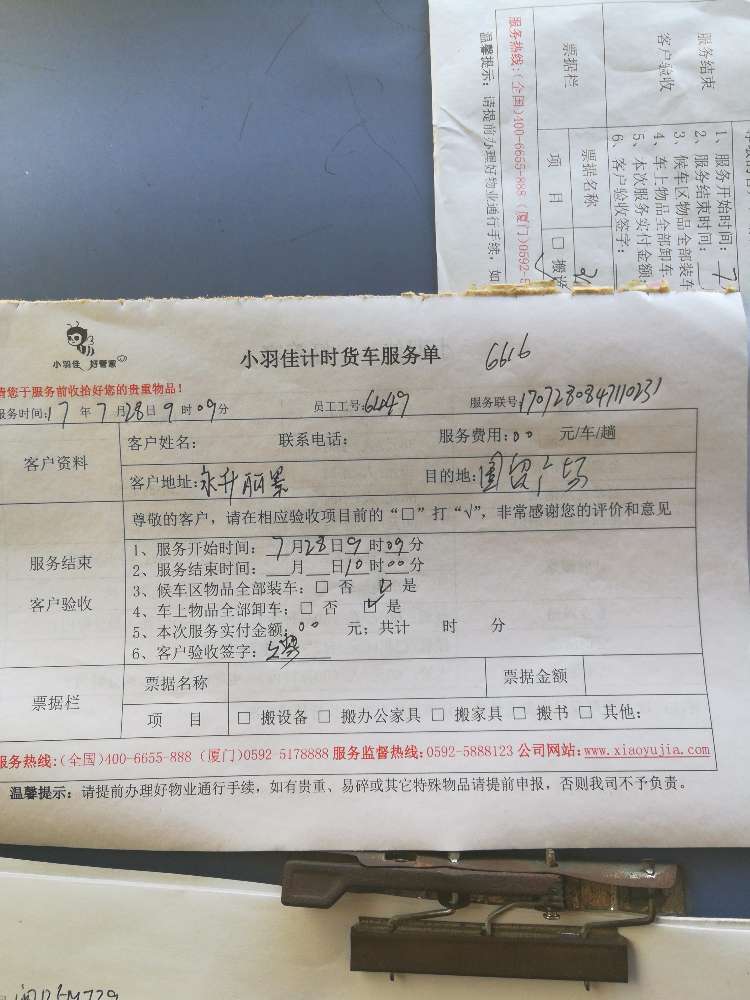 服务结束
客户验收
1、服务开始时间：7
2、服务结束时间：
3、候车区物品全部装车
4、车上物品全部卸车
5、本次服务实付金额
6、客户验收签字：
票据栏
票据名称
项 目
□ 搬设
服务热线：(全国)400-6655-888 (厦门)0592-5
温馨提示：请提前办理好物业通行手续，如
小羽佳 好管家
小羽佳计时货车服务单
6616
请您于服务前收拾好您的贵重物品！
服务时间：17 年 7 月 28 日 9 时 09 分 员工工号：6449 服务联号：1707280847110231
客户资料
客户姓名： 联系电话： 服务费用：00 元/车/趟
客户地址：永升丽景 目的地：国贸广场
服务结束
客户验收
尊敬的客户，请在相应验收项目前的“□”打“√”，非常感谢您的评价和意见
1、服务开始时间：7月28日9时09分
2、服务结束时间： 月 日10时00分
3、候车区物品全部装车：□ 否 ☑ 是
4、车上物品全部卸车：□ 否 ☑ 是
5、本次服务实付金额：00 元；共计 时 分
6、客户验收签字：
票据栏
票据名称 票据金额
项 目 □ 搬设备 □ 搬办公家具 □ 搬家具 □ 搬书 □ 其他：
服务热线：(全国)400-6655-888 (厦门)0592-5178888 服务监督热线：0592-5888123 公司网站：www.xiaoyujia.com
温馨提示：请提前办理好物业通行手续，如有贵重、易碎或其它特殊物品请提前申报，否则我司不予负责。